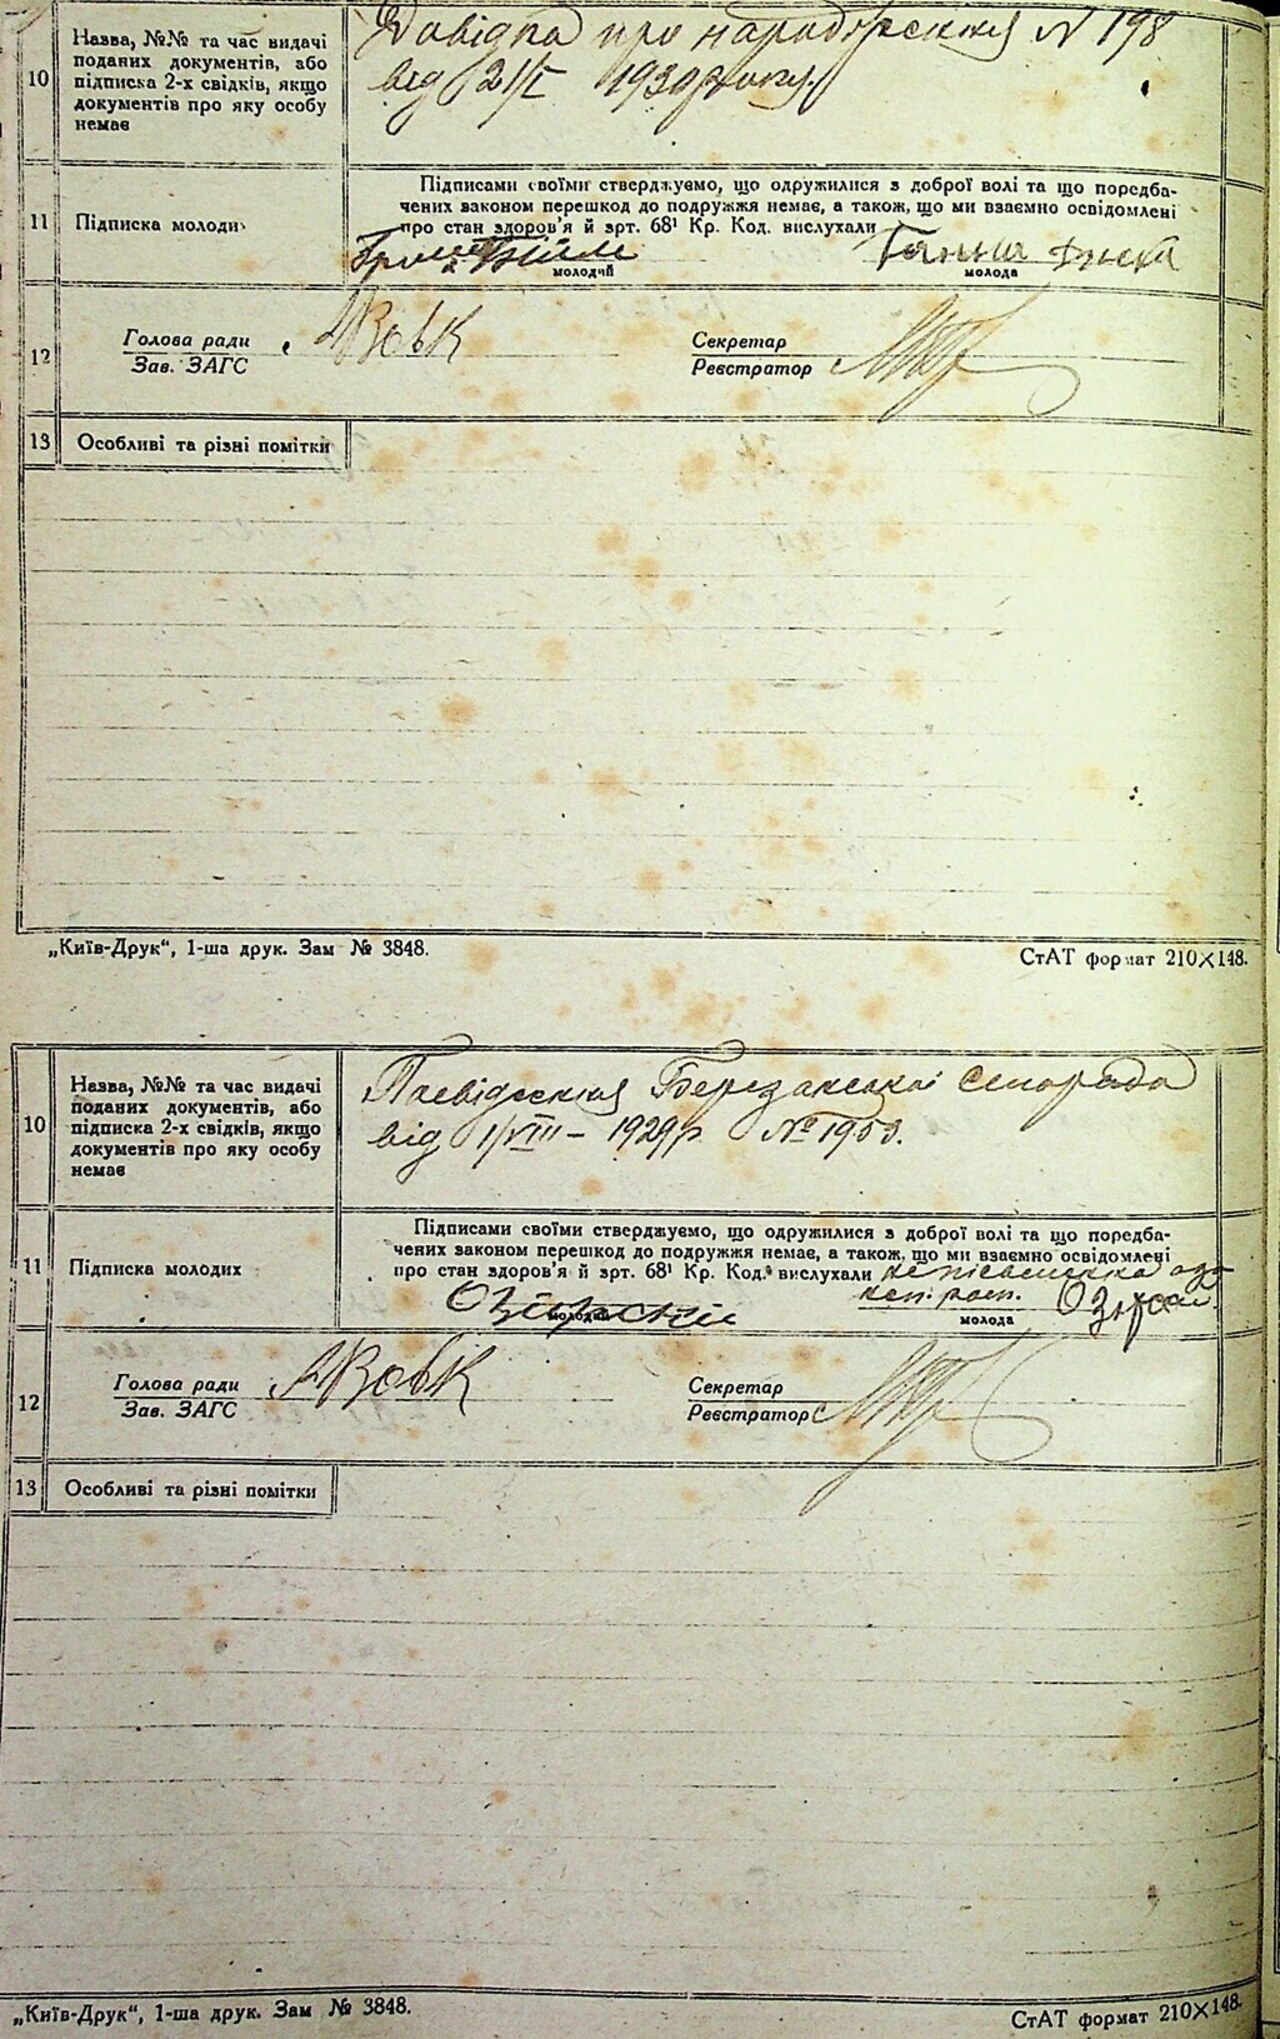 10
Назва, №№ та час видачі
поданих документів, або
підписка 2-х свідків, якщо
документів про яку особу
немає
Довідка про народження N 198
від 21/I 1930 року.
11
Підписка молодих
Підписами своїми стверджуємо, що одружилися з доброї волі та що передба-
чених законом перешкод до подружжя немає, а також, що ми взаємно освідомлені
про стан здоров'я й зрт. 68¹ Кр. Код. вислухали
Ганна
молодий
молода
12
Голова ради
Зав. ЗАГС
Вовк
Секретар
Реєстратор
13
Особливі та різні помітки
„Київ-Друк“, 1-ша друк. Зам № 3848.
СтАТ формат 210×148.
10
Назва, №№ та час видачі
поданих документів, або
підписка 2-х свідків, якщо
документів про яку особу
немає
Посвідчення Березанської Сельради
від 1/VIII – 1929 р. № 1953.
11
Підписка молодих
Підписами своїми стверджуємо, що одружилися з доброї волі та що передба-
чених законом перешкод до подружжя немає, а також, що ми взаємно освідомлені
про стан здоров'я й зрт. 68¹ Кр. Код. вислухали
молодий
молода
12
Голова ради
Зав. ЗАГС
Вовк
Секретар
Реєстратор
13
Особливі та різні помітки
„Київ-Друк“, 1-ша друк. Зам № 3848.
СтАТ формат 210×148.